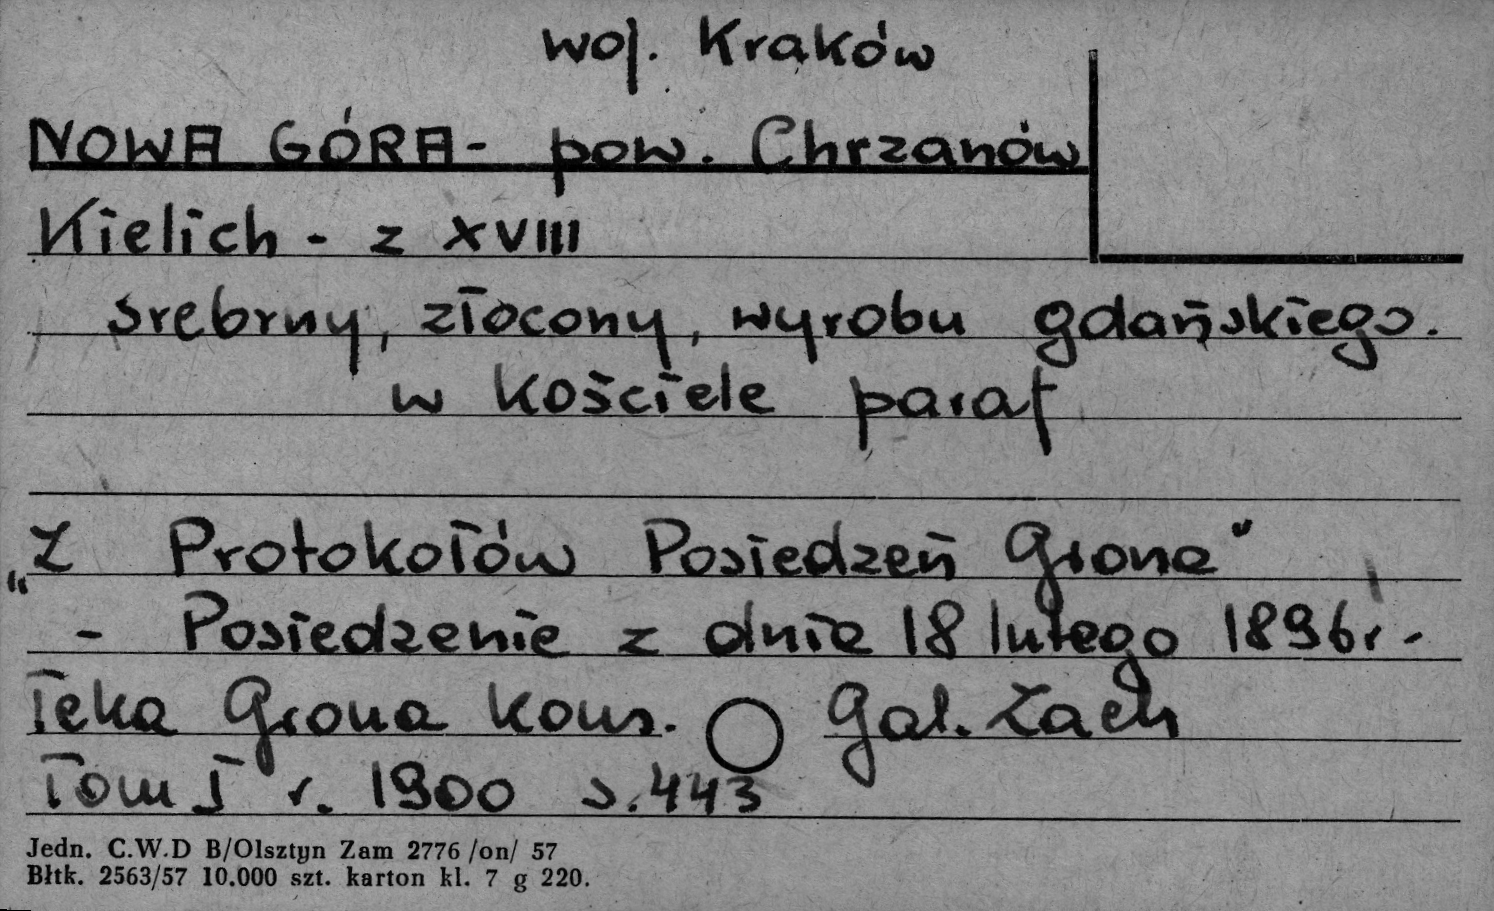 woj. Kraków
NOWA GÓRA- pow. Chrzanów
Kielich - z XVIII
srebrny, złocony, wyrobu gdańskiego.
w kościele paraf
„Z Protokołów Posiedzeń Grona"
- Posiedzenie z dnia 18 lutego 1896r-
Teka Grona kons. Gal. Zach
Tom I r. 1900 s.443
Jedn. C.W.D B/Olsztyn Zam 2776 /on/ 57
Błtk. 2563/57 10.000 szt. karton kl. 7 g 220.